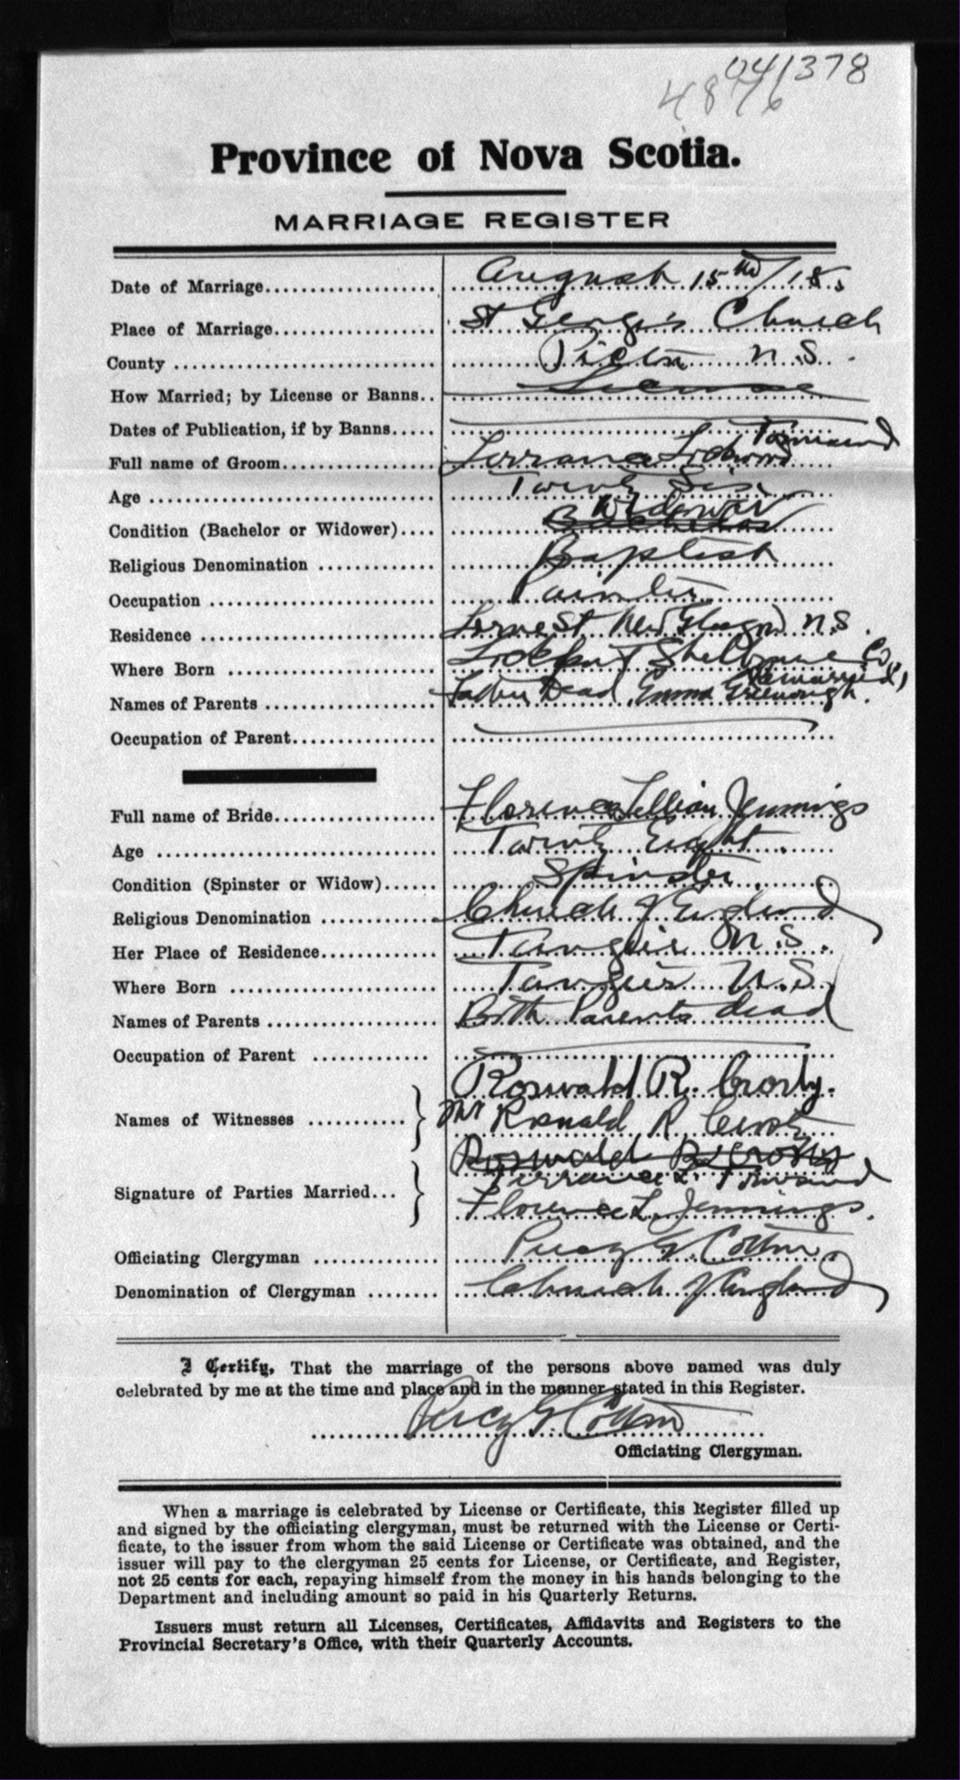 041378
4876
Province of Nova Scotia.
MARRIAGE REGISTER
Date of Marriage August 15th/18.
Place of Marriage St George's Church
County Pictou N.S.
How Married; by License or Banns. License
Dates of Publication, if by Banns
Townsend
Full name of Groom Lockwood
Age Twenty Six
Widower
Condition (Bachelor or Widower) Bachelor
Religious Denomination Baptist
Occupation Painter
Residence St New Glasgow N.S.
Where Born Lockeport Shelburne Co
(Remarried)
Names of Parents Father Dead, Emma Greenough.
Occupation of Parent
Full name of Bride Florence Lillian Jennings
Age Twenty Eight.
Condition (Spinster or Widow) Spinster.
Religious Denomination Church of England
Her Place of Residence Tangier N.S.
Where Born Tangier N.S.
Names of Parents Both Parents dead
Occupation of Parent
Roswald R. Crosby.
Names of Witnesses Mr Ronald R.
Roswald R Crosby
Signature of Parties Married L. Townsend
Florence L. Jennings.
Officiating Clergyman Percy G. Cotton
Denomination of Clergyman Church of England
I Certify, That the marriage of the persons above named was duly
celebrated by me at the time and place and in the manner stated in this Register.
Percy G. Cotton
Officiating Clergyman.
When a marriage is celebrated by License or Certificate, this Register filled up
and signed by the officiating clergyman, must be returned with the License or Certi-
ficate, to the issuer from whom the said License or Certificate was obtained, and the
issuer will pay to the clergyman 25 cents for License, or Certificate, and Register,
not 25 cents for each, repaying himself from the money in his hands belonging to the
Department and including amount so paid in his Quarterly Returns.
Issuers must return all Licenses, Certificates, Affidavits and Registers to the
Provincial Secretary's Office, with their Quarterly Accounts.